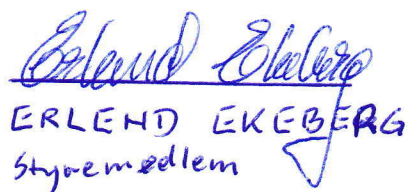 Erlend Ekeberg
ERLEND EKEBERG
Styremedlem